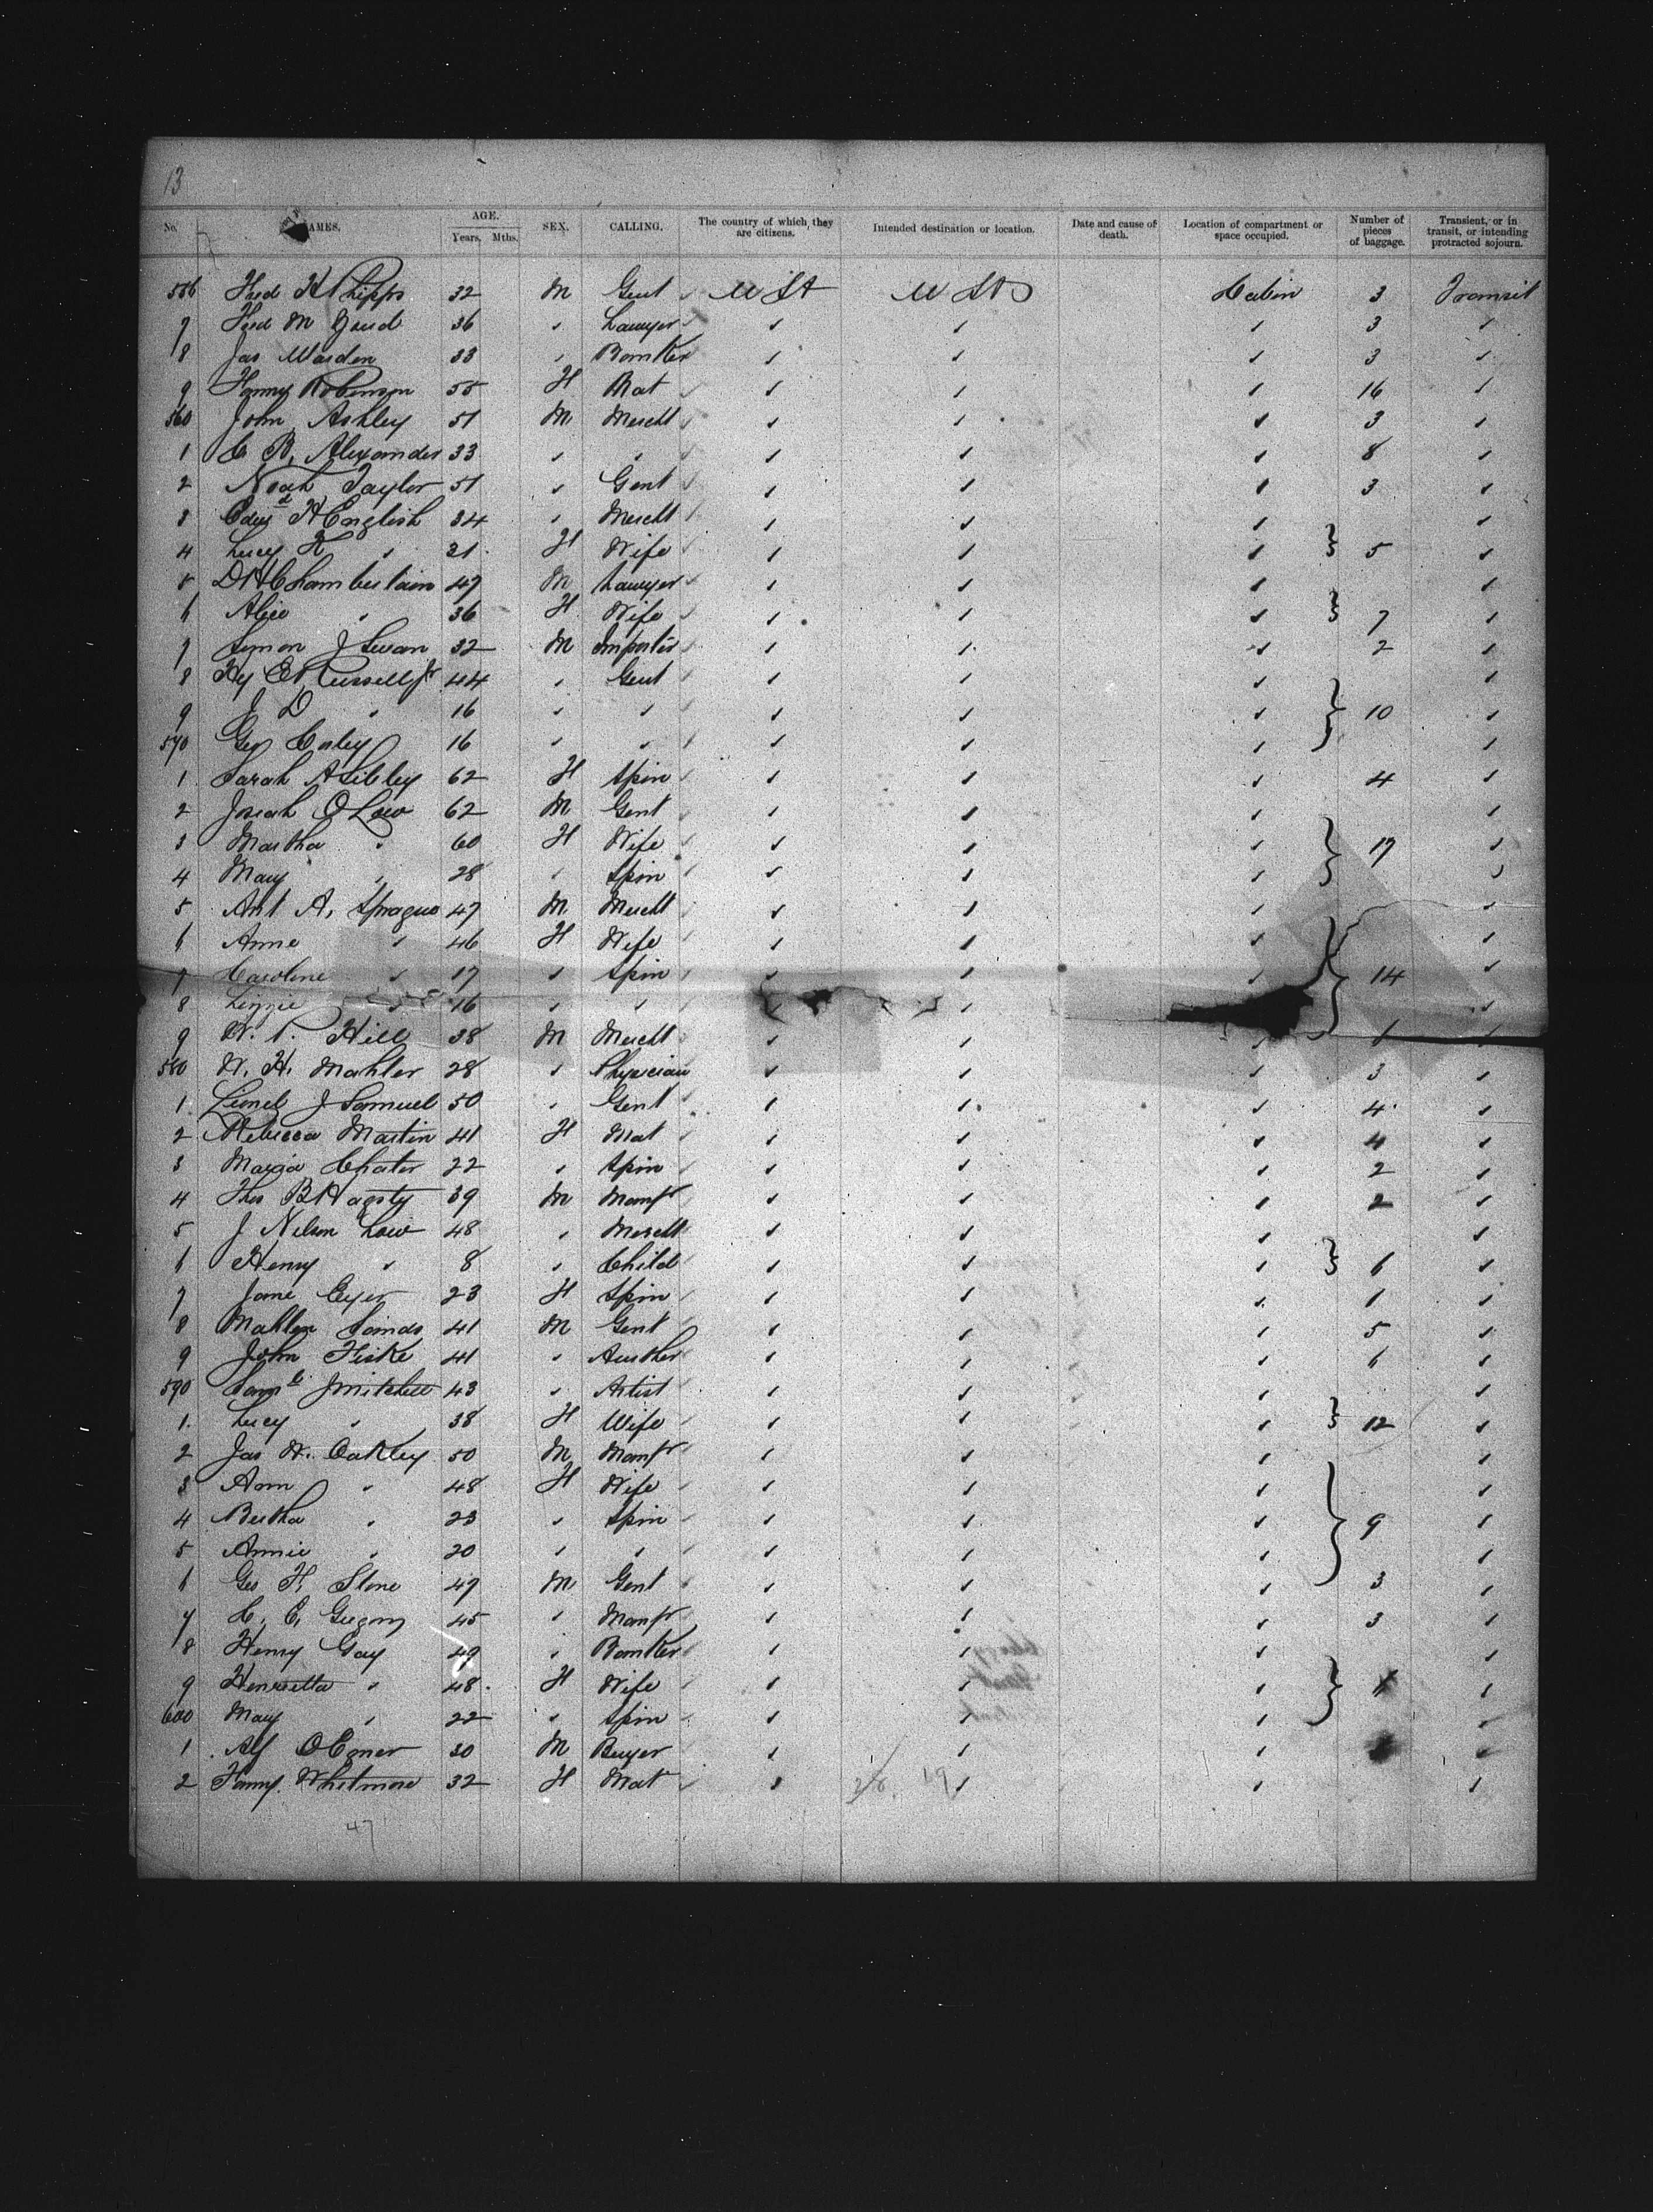 13
No. NAMES. AGE. Years. Mths. SEX. CALLING. The country of which they are citizens. Intended destination or location. Date and cause of death. Location of compartment or space occupied. Number of pieces of baggage. Transient, or in transit, or intending protracted sojourn.
556 Fred H Phipps 32 M Gent U St U Sts Cabin 3 Transit
7 Fred M 36 " Lawyer " " " 3 "
8 Jas Marden 33 " Banker " " " 3 "
9 Fanny Robinson 55 F Mat " " " 16 "
560 John Ashley 51 M Mercht " " " 3 "
1 C B. Alexander 33 " " " " " 8 "
2 Noah Taylor 51 " Gent " " " 3 "
3 H English 34 " Mercht " " " "
4 Lucy K " 31 F Wife " " " } 5 "
5 D H Chamberlain 47 M Lawyer " " " "
6 Alice " 36 F Wife " " " } 7 "
7 Symon J Swan 32 M Importer " " " 2 "
8 Hy E Russell Jr 44 " Gent " " " "
9 J D " 16 " " " " " } 10 "
570 Geo Corley 16 " " " " " "
1 Sarah A Sibley 62 F Spin " " " 4 "
2 Josiah O Low 62 M Gent " " " "
3 Martha " 60 F Wife " " " } 17 "
4 Mary " 28 " Spin " " " "
5 A. Sprague 47 M Mercht " " " "
6 Anne " 46 F Wife " " " "
7 Caroline " 17 " Spin " " " } 14 "
8 Lizzie " 16 " " " " "
9 W. P. Hill 38 M Mercht " " " 1 "
580 W. H. Mahler 28 " Physician " " " 3 "
1 Lionel J Samuel 50 " Gent " " " 4 "
2 Rebecca Martin 41 F Mat " " " 4 "
3 Maria Chater 22 " Spin " " " 2 "
4 Thos B Hagsty 39 M Manfr " " " 2 "
5 J Nelson Low 48 " Mercht " " " "
6 Henry " 8 " Child " " " } 6 "
7 Jane Eyer 23 F Spin " " " 1 "
8 Mahlon Sands 41 M Gent " " " 5 "
9 John Fiske 41 " Author " " " 6 "
590 Saml J Mitchell 43 " Artist " " " "
1 Lucy " 38 F Wife " " " } 12 "
2 Jas W. Oakley 50 M Manfr " " " "
3 Ann " 48 F Wife " " " "
4 Bertha " 23 " Spin " " " } 9 "
5 Annie " 20 " " " " " "
6 Geo F. Stone 49 M Gent " " " 3 "
7 H. C. Gregory 45 " Manfr " " " 3 "
8 Henry Gay 49 " Banker " " " "
9 Henrietta " 48 F Wife " " " } "
600 Mary " 22 " Spin " " " "
1 Alf O Egner 30 M Buyer " " " "
2 Fanny Whitmore 32 F Mat " " " "
47